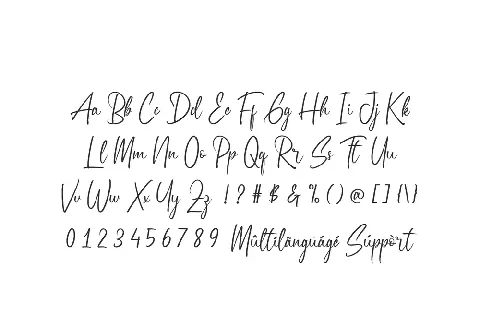 Aa Bb Cc Dd Ee Ff Gg Hh Ii Jj Kk
Ll Mm Nn Oo Pp Qq Rr Ss Tt Uu
Vv Ww Xx Yy Zz ! ? # $ & % ( ) @ [ ] { \ }
0 1 2 3 4 5 6 7 8 9 Mûltilãngüágé Súppòrt